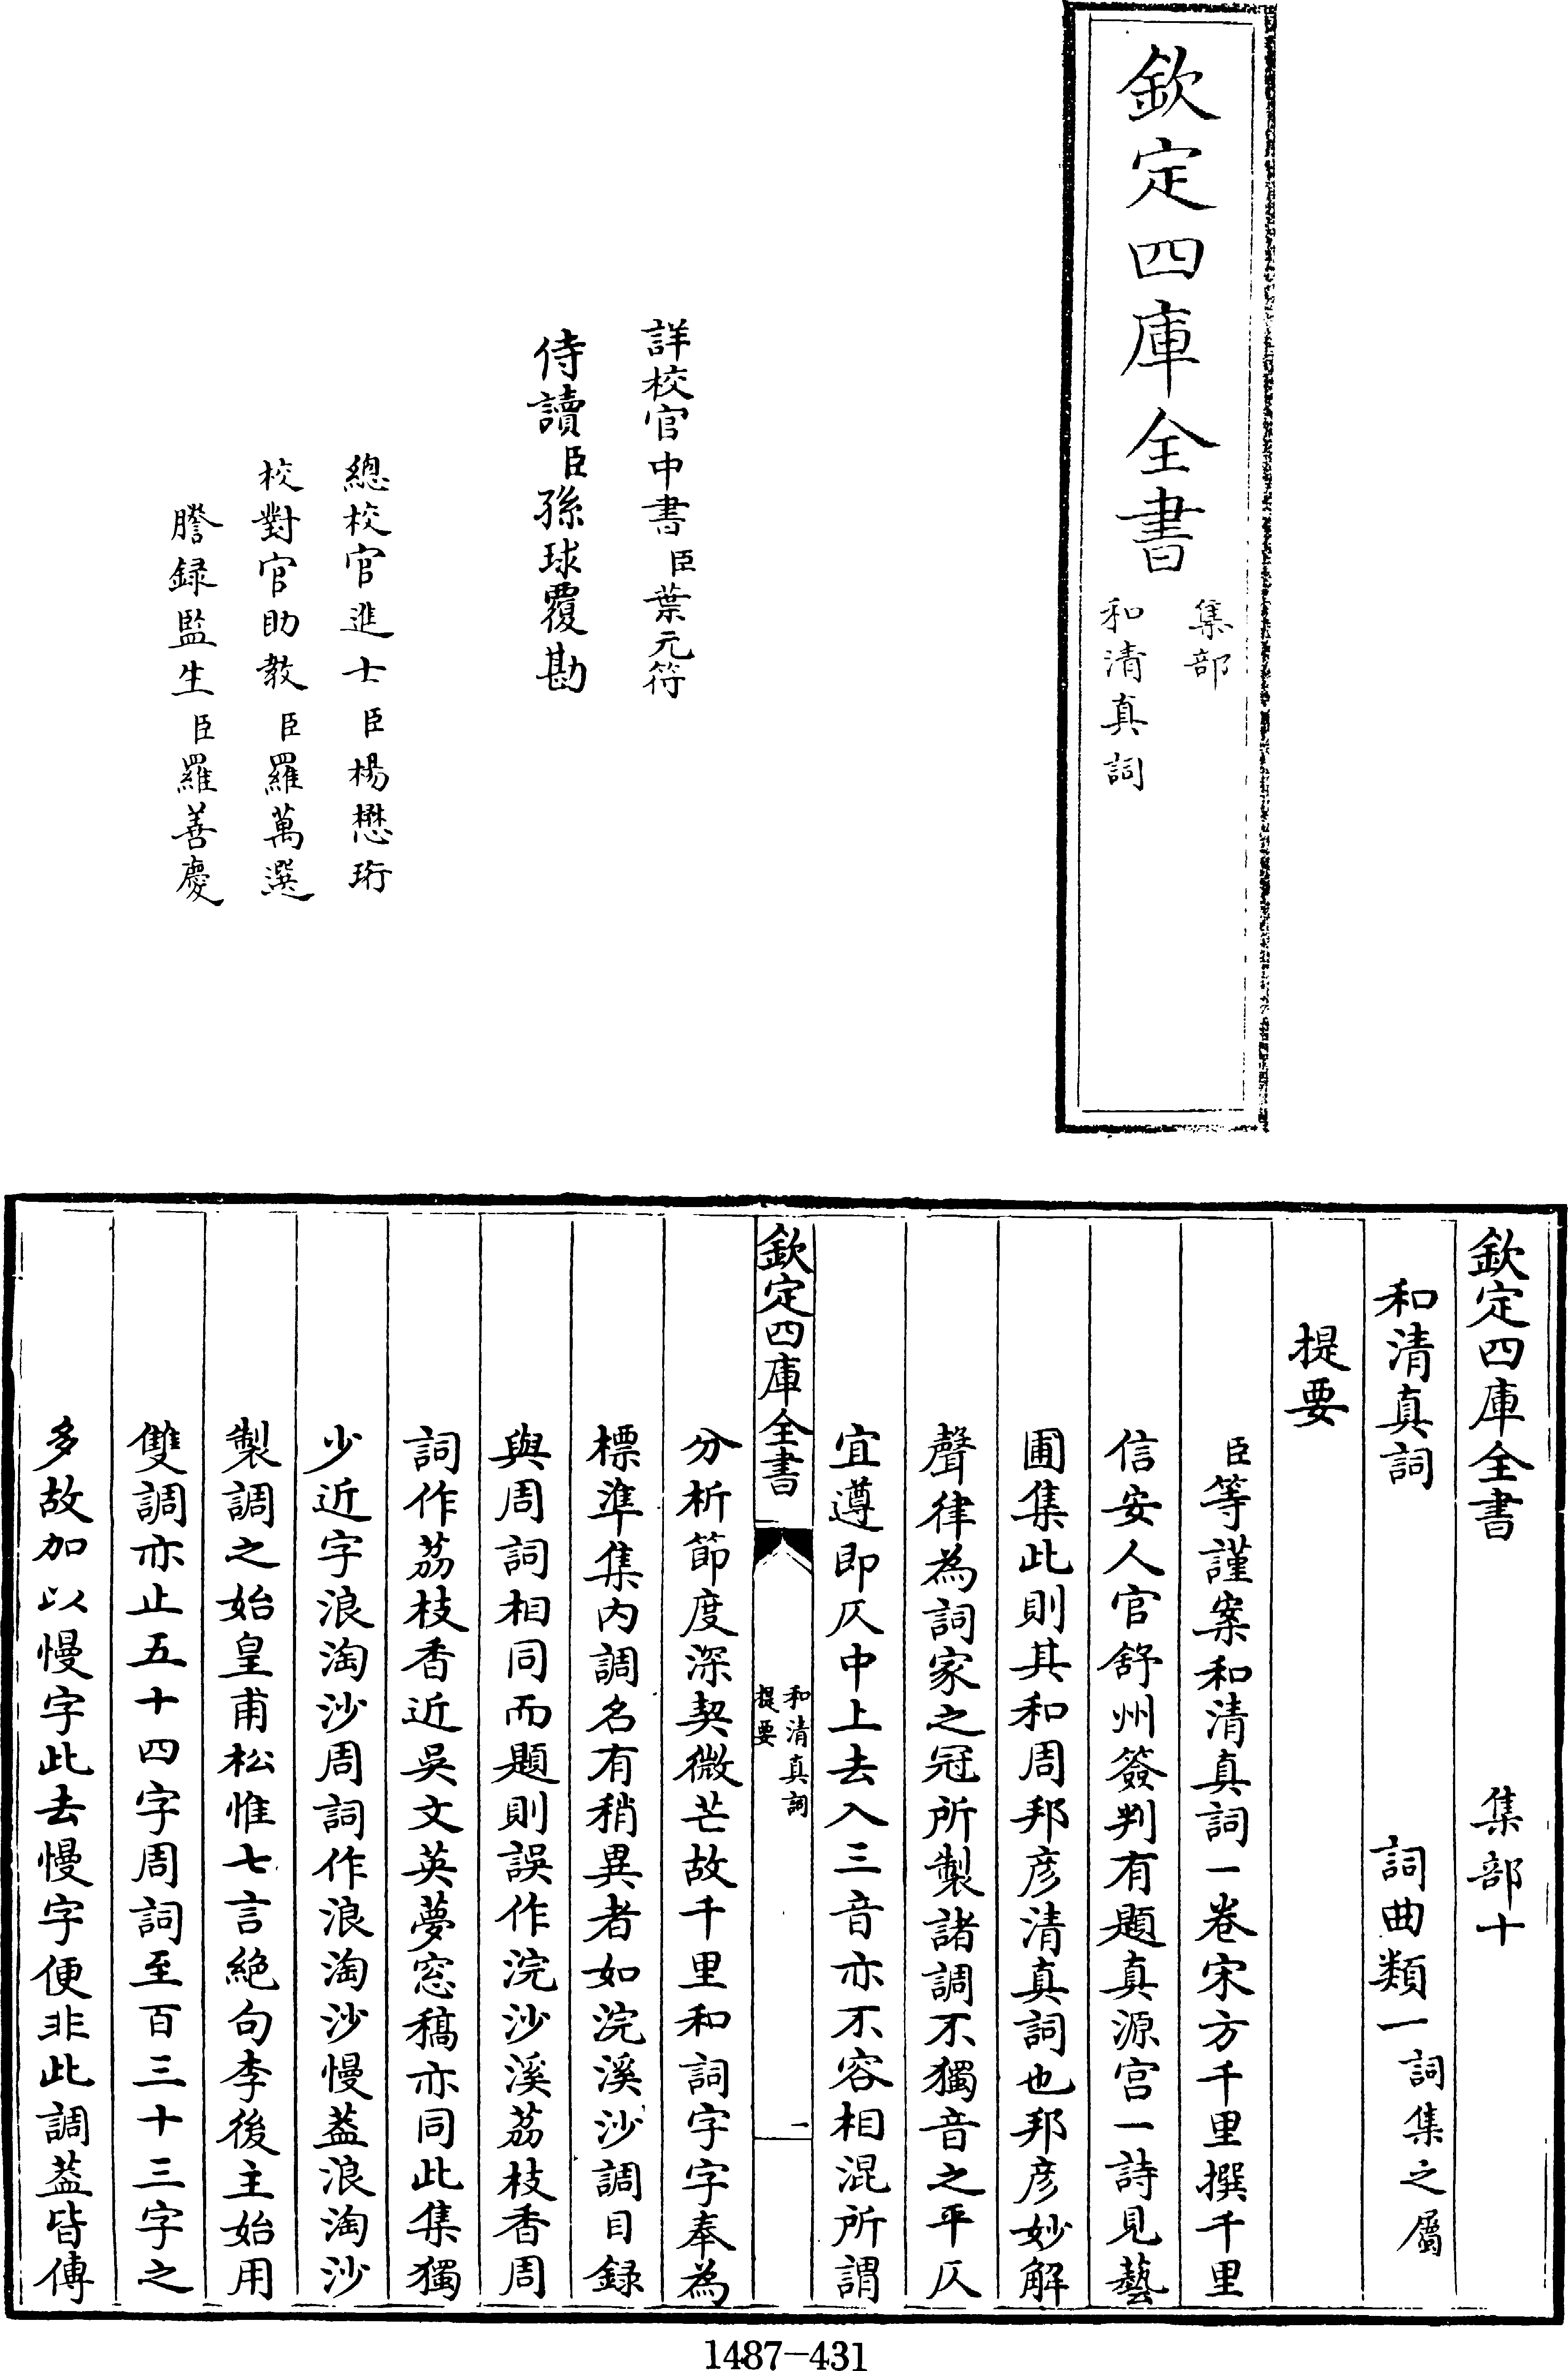 欽定四庫全書
集部
和清真詞
詳校官中書臣葉元符
侍讀臣孫球覆勘
總校官進士臣楊懋珩
校對官助教臣羅萬選
謄録監生臣羅善慶
欽定四庫全書　集部十
和清真詞　詞曲類一詞集之屬
提要
臣等謹案和清真詞一卷宋方千里撰千里
信安人官舒州簽判有題真源宫一詩見藝
圃集此則其和周邦彦清真詞也邦彦妙解
聲律為詞家之冠所製諸調不獨音之平仄
宜遵即仄中上去入三音亦不容相混所謂
欽定四庫全書
和清真詞
提要
一
分析節度深契微芒故千里和詞字字奉為
標準集内調名有稍異者如浣溪沙調目録
與周詞相同而題則誤作浣沙溪荔枝香周
詞作荔枝香近吳文英夢窓稿亦同此集獨
少近字浪淘沙周詞作浪淘沙慢葢浪淘沙
製調之始皇甫松惟七言絶句李後主始用
雙調亦止五十四字周詞至百三十三字之
多故加以慢字此去慢字便非此調葢皆傳
1487-431